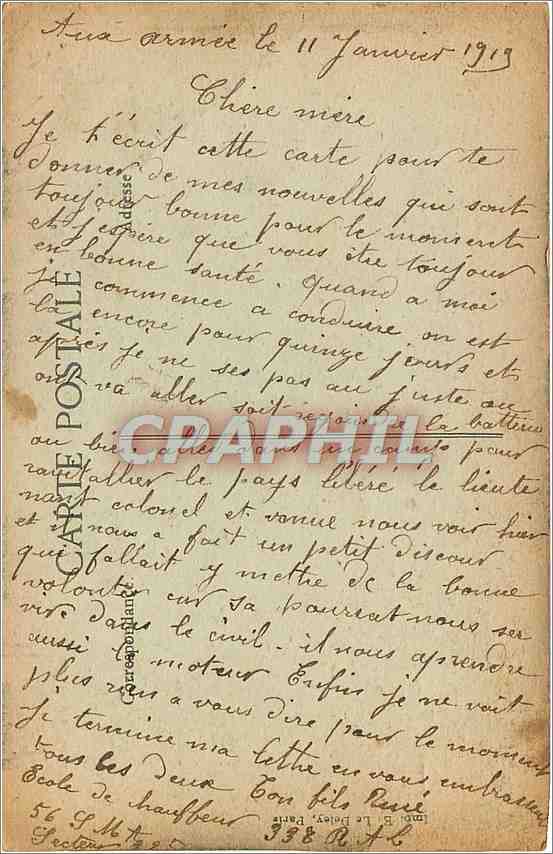 Aux armée le 11 Janvier 1919
Chère mère
Je t'écrit cette carte pour te
donner de mes nouvelles qui sont
toujour bonne pour le moment
et j'espère que vous ètre toujour
en bonne santé. Quand a moi
je commence a conduire on est
la encore pour quinze jours et
après je ne ses pas au juste ou
on va aller soit rejoindre la batterie
ou bien aller dans un camp pour
ravitallier le pays libéré le lieute
nant colonel et venue nous voir hier
et il nous a fait un petit discour
qui fallait y mettre de la bonne
volonter car sa pourrat nous ser
vire dans le civil. il nous aprendre
aussi le moteur Enfin je ne voit
plus rien a vous dire pour le moment
Je termine ma lettre en vous embrassent
tous les deux Ton fils René
École de chauffeur 338 R A L
56 S M A
Secteur
CARTE POSTALE
Correspondance
Adresse
Imp. E. Le Deley, Paris
CPAPHIL